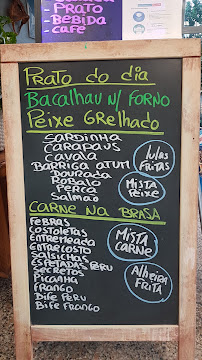 PRATO
BEBIDA
CAFE
PRATO do dia
BACALHAU N/ FORNO
PEIXE GRELHADO
SARDINHA
CARAPAUS
CAVALA
BARRIGA ATUM
DOURADA
ROBALO
PERCA
SALMÃO
LULAS
FRITAS
MISTA
PEIXE
CARNE NA BRASA
FEBRAS
COSTOLETAS
ENTREMEADA
ENTRECOSTO
SALSICHAS
ESPETADAS PERU
SECRETOS
PICANHA
FRANGO
BIFE PERU
BIFE FRANGO
MISTA
CARNE
ALHEIRA
FRITA